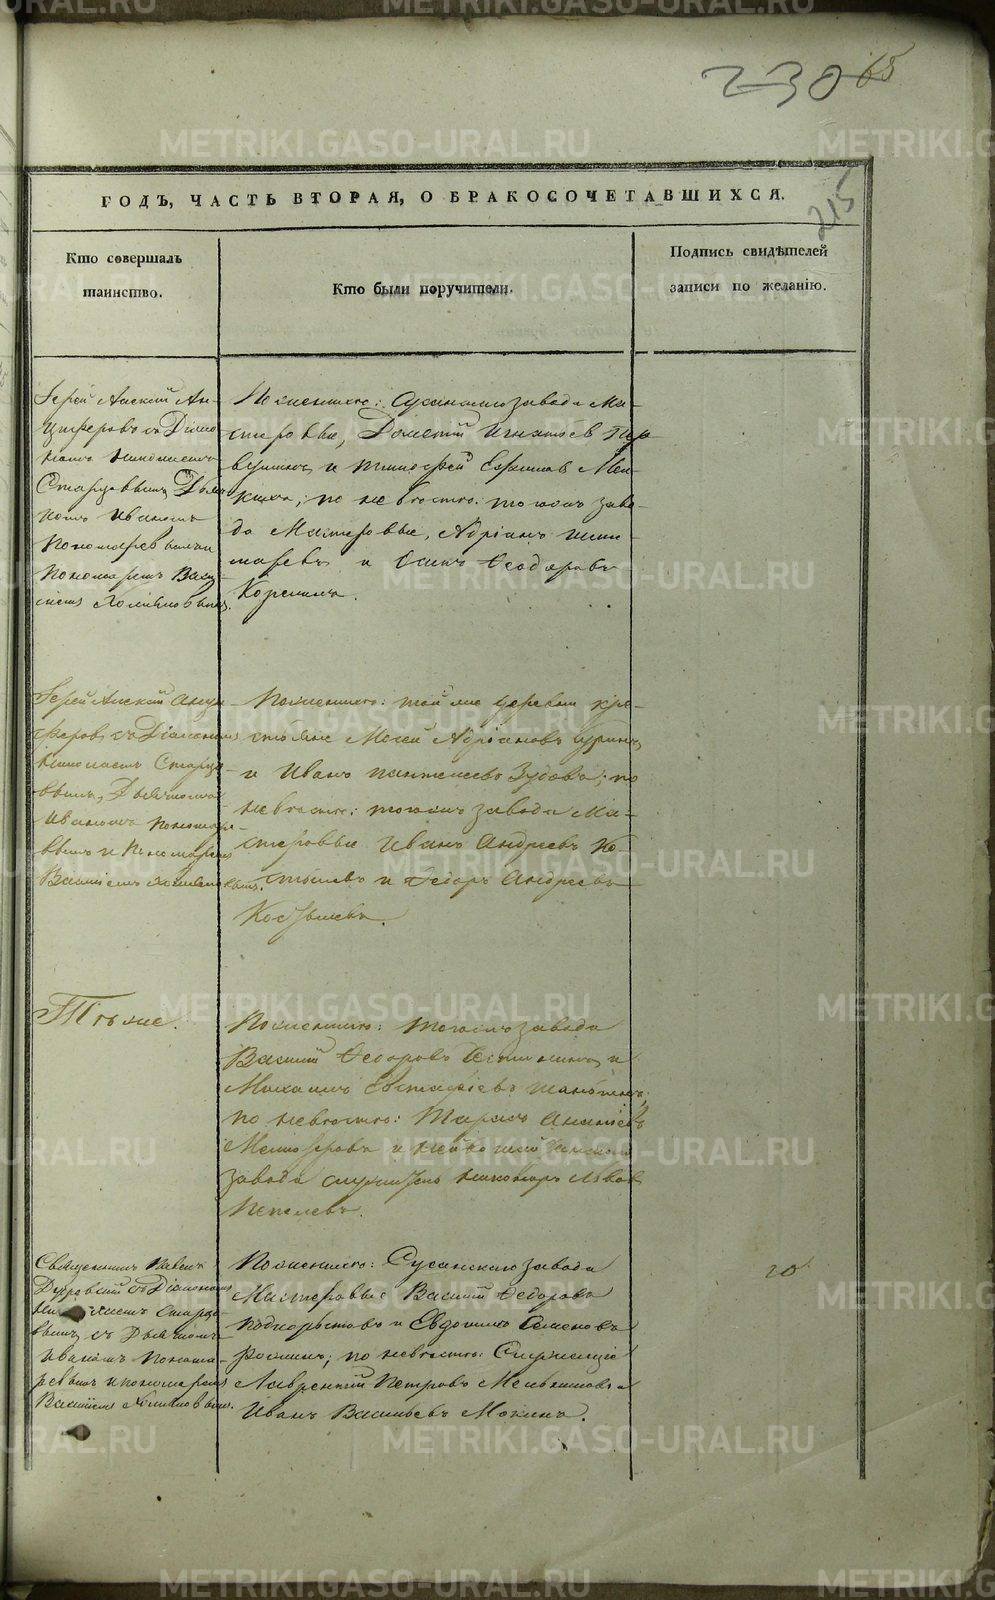 230 65
215
ГОДЪ, ЧАСТЬ ВТОРАЯ, О БРАКОСОЧЕТАВШИХСЯ.
Кто совершалъ
таинство.
Кто были поручители.
Подпись свидѣтелей
записи по желанію.
Іерей Алексій Ан-
циферовъ съ Діако-
номъ Николаемъ
Старцовымъ, Дьяч-
комъ Иваномъ
Пономаревымъ и
Пономаремъ Васи-
ліемъ Хомяковымъ.
По женихѣ: Сусанскаго завода Ма-
стеровые, Дометій Игнатьев
и Тимофей Ефимов
по невѣстѣ: тогожъ заво-
да Мастеровые, Адріанъ
и Осипъ Ѳеодоровъ
Корелинъ.
Іерей Алексій Анци-
феровъ, съ Діакономъ
Николаемъ Старцо-
вымъ, Дьячкомъ
Иваномъ Пономаре-
вымъ и Пономаремъ
Василіемъ Хомяковымъ.
По женихѣ: той же деревни кре-
стьяне Мокей Адріановъ
и Иванъ Пантелеевъ Зудовъ; по
невѣстѣ: тогожъ завода Ма-
стеровые Иванъ Андреевъ Ко-
стылевъ и Ѳедоръ Андреевъ
Костылевъ.
Тѣ же.
По женихѣ: тогожъ завода
Василій Ѳедоровъ и
Михаилъ Евстафіевъ
по невѣстѣ: Тарасъ Ананьевъ
и
завода служитель Никаноръ Львов
Пепелевъ.
Священникъ Павелъ
съ Діакономъ
Николаемъ Старцо-
вымъ, съ Дьячкомъ
Иваномъ Понома-
ревымъ и пономаремъ
Василіемъ Хомяковымъ.
По женихѣ: Сусанскаго завода
Мастеровые Василій Ѳедоровъ
Подкорытовъ и Евдокимъ Семеновъ
по невѣстѣ: Служащіе
Лаврентій Петровъ Мельниковъ и
Иванъ Васильевъ Мокинъ.
20
METRIKI.GASO-URAL.RU